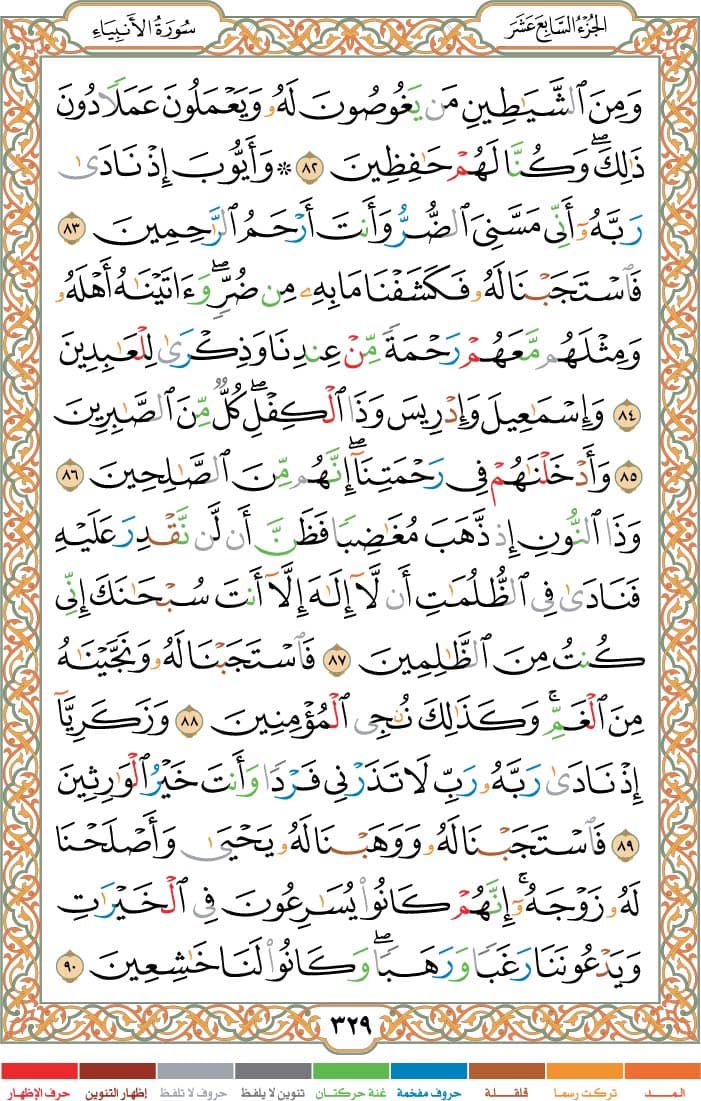 سُورَةُ الأَنبِيَاءِ
الجُزْءُ السَّابِعَ عَشَرَ
وَمِنَ ٱلشَّيَٰطِينِ مَن يَغُوصُونَ لَهُۥ وَيَعْمَلُونَ عَمَلًا دُونَ
ذَٰلِكَ ۖ وَكُنَّا لَهُمْ حَٰفِظِينَ ٨٢ ۞ وَأَيُّوبَ إِذْ نَادَىٰ
رَبَّهُۥٓ أَنِّى مَسَّنِىَ ٱلضُّرُّ وَأَنتَ أَرْحَمُ ٱلرَّٰحِمِينَ ٨٣
فَٱسْتَجَبْنَا لَهُۥ فَكَشَفْنَا مَا بِهِۦ مِن ضُرٍّ ۖ وَءَاتَيْنَٰهُ أَهْلَهُۥ
وَمِثْلَهُم مَّعَهُمْ رَحْمَةً مِّنْ عِندِنَا وَذِكْرَىٰ لِلْعَٰبِدِينَ
٨٤ وَإِسْمَٰعِيلَ وَإِدْرِيسَ وَذَا ٱلْكِفْلِ ۖ كُلٌّ مِّنَ ٱلصَّٰبِرِينَ
٨٥ وَأَدْخَلْنَٰهُمْ فِى رَحْمَتِنَآ ۖ إِنَّهُم مِّنَ ٱلصَّٰلِحِينَ ٨٦
وَذَا ٱلنُّونِ إِذ ذَّهَبَ مُغَٰضِبًا فَظَنَّ أَن لَّن نَّقْدِرَ عَلَيْهِ
فَنَادَىٰ فِى ٱلظُّلُمَٰتِ أَن لَّآ إِلَٰهَ إِلَّآ أَنتَ سُبْحَٰنَكَ إِنِّى
كُنتُ مِنَ ٱلظَّٰلِمِينَ ٨٧ فَٱسْتَجَبْنَا لَهُۥ وَنَجَّيْنَٰهُ
مِنَ ٱلْغَمِّ ۚ وَكَذَٰلِكَ نُۨجِى ٱلْمُؤْمِنِينَ ٨٨ وَزَكَرِيَّآ
إِذْ نَادَىٰ رَبَّهُۥ رَبِّ لَا تَذَرْنِى فَرْدًا وَأَنتَ خَيْرُ ٱلْوَٰرِثِينَ
٨٩ فَٱسْتَجَبْنَا لَهُۥ وَوَهَبْنَا لَهُۥ يَحْيَىٰ وَأَصْلَحْنَا
لَهُۥ زَوْجَهُۥٓ ۚ إِنَّهُمْ كَانُوا۟ يُسَٰرِعُونَ فِى ٱلْخَيْرَٰتِ
وَيَدْعُونَنَا رَغَبًا وَرَهَبًا ۖ وَكَانُوا۟ لَنَا خَٰشِعِينَ ٩٠
٣٢٩
المــد تركت رسما قلقـلة حروف مفخمة غنة حركتان تنوين لا يلفظ حروف لا تلفظ إظهار التنوين حرف الإظهار